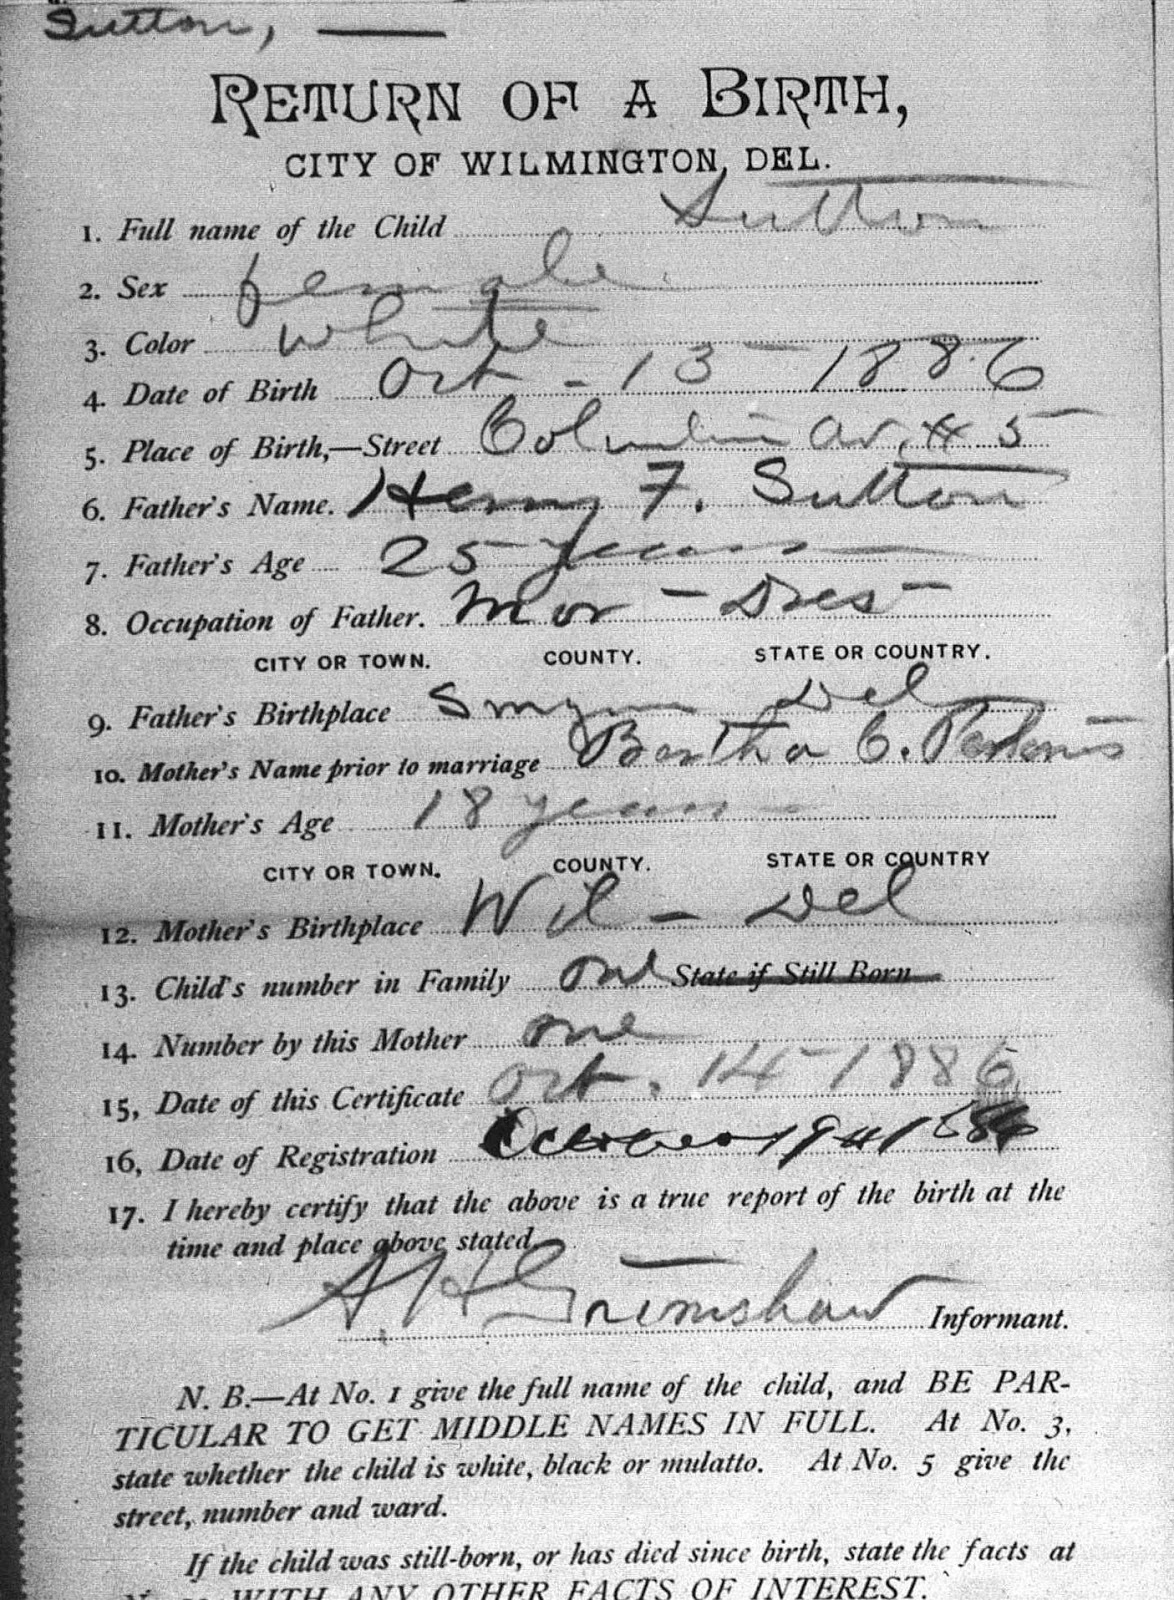 Sutton, —
RETURN OF A BIRTH,
CITY OF WILMINGTON, DEL.
1. Full name of the Child Sutton
2. Sex female
3. Color white
4. Date of Birth Oct - 13 - 1886
5. Place of Birth,—Street Columbia Av. # 5
6. Father's Name. Henry F. Sutton
7. Father's Age 25 years
8. Occupation of Father. Mor -
CITY OR TOWN. COUNTY. STATE OR COUNTRY.
9. Father's Birthplace Smyrna Del
10. Mother's Name prior to marriage Bertha C. Perkins
11. Mother's Age 18 years
CITY OR TOWN. COUNTY. STATE OR COUNTRY
12. Mother's Birthplace Wil - Del
13. Child's number in Family one State if Still Born
14. Number by this Mother one
15, Date of this Certificate Oct. 14 - 1886
16, Date of Registration October 1886
17. I hereby certify that the above is a true report of the birth at the
time and place above stated.
A. H. Grimshaw Informant.
N. B.—At No. 1 give the full name of the child, and BE PAR-
TICULAR TO GET MIDDLE NAMES IN FULL. At No. 3,
state whether the child is white, black or mulatto. At No. 5 give the
street, number and ward.
If the child was still-born, or has died since birth, state the facts at
WITH ANY OTHER FACTS OF INTEREST.